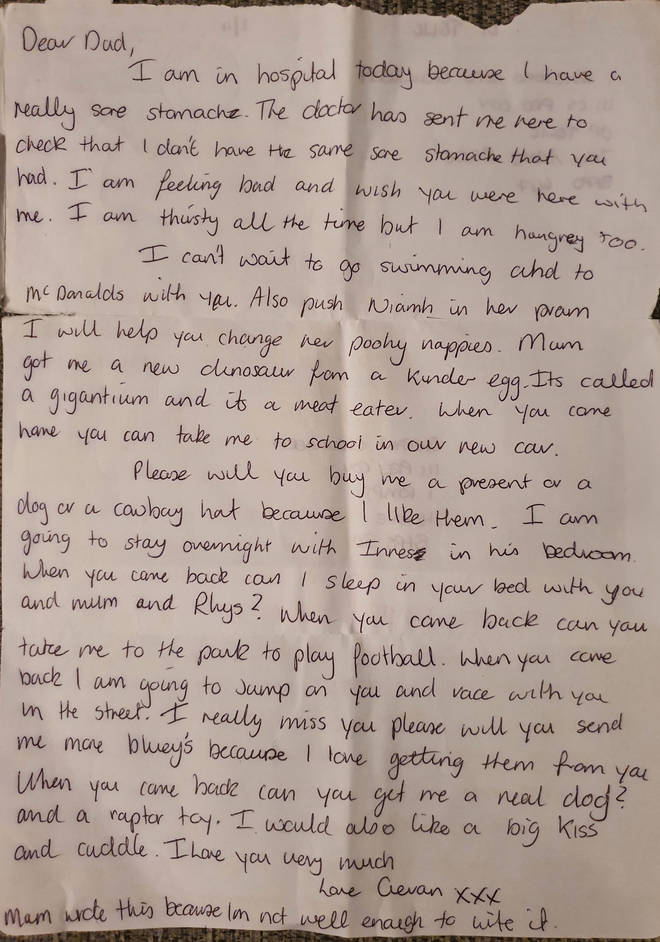 Dear Dad,
I am in hospital today because I have a
really sore stomache. The doctor has sent me here to
check that I don't have the same sore stomache that you
had. I am feeling bad and wish you were here with
me. I am thirsty all the time but I am hungrey too.
I can't wait to go swimming and to
McDonalds with you. Also push Niamh in her pram
I will help you change her poohy nappies. Mum
got me a new dinosaur from a Kinder egg. Its called
a gigantium and its a meat eater. When you come
home you can take me to school in our new car.
Please will you buy me a present or a
dog or a cowboy hat because I like them. I am
going to stay overnight with Inness in his bedroom.
When you come back can I sleep in your bed with you
and mum and Rhys? When you come back can you
take me to the park to play football. When you come
back I am going to jump on you and race with you
in the street. I really miss you please will you send
me more bluey's because I love getting them from you
When you come back can you get me a real dog?
and a raptor toy. I would also like a big kiss
and cuddle. I love you very much
Love Cievan xxx
Mam wrote this because Im not well enough to wite it.